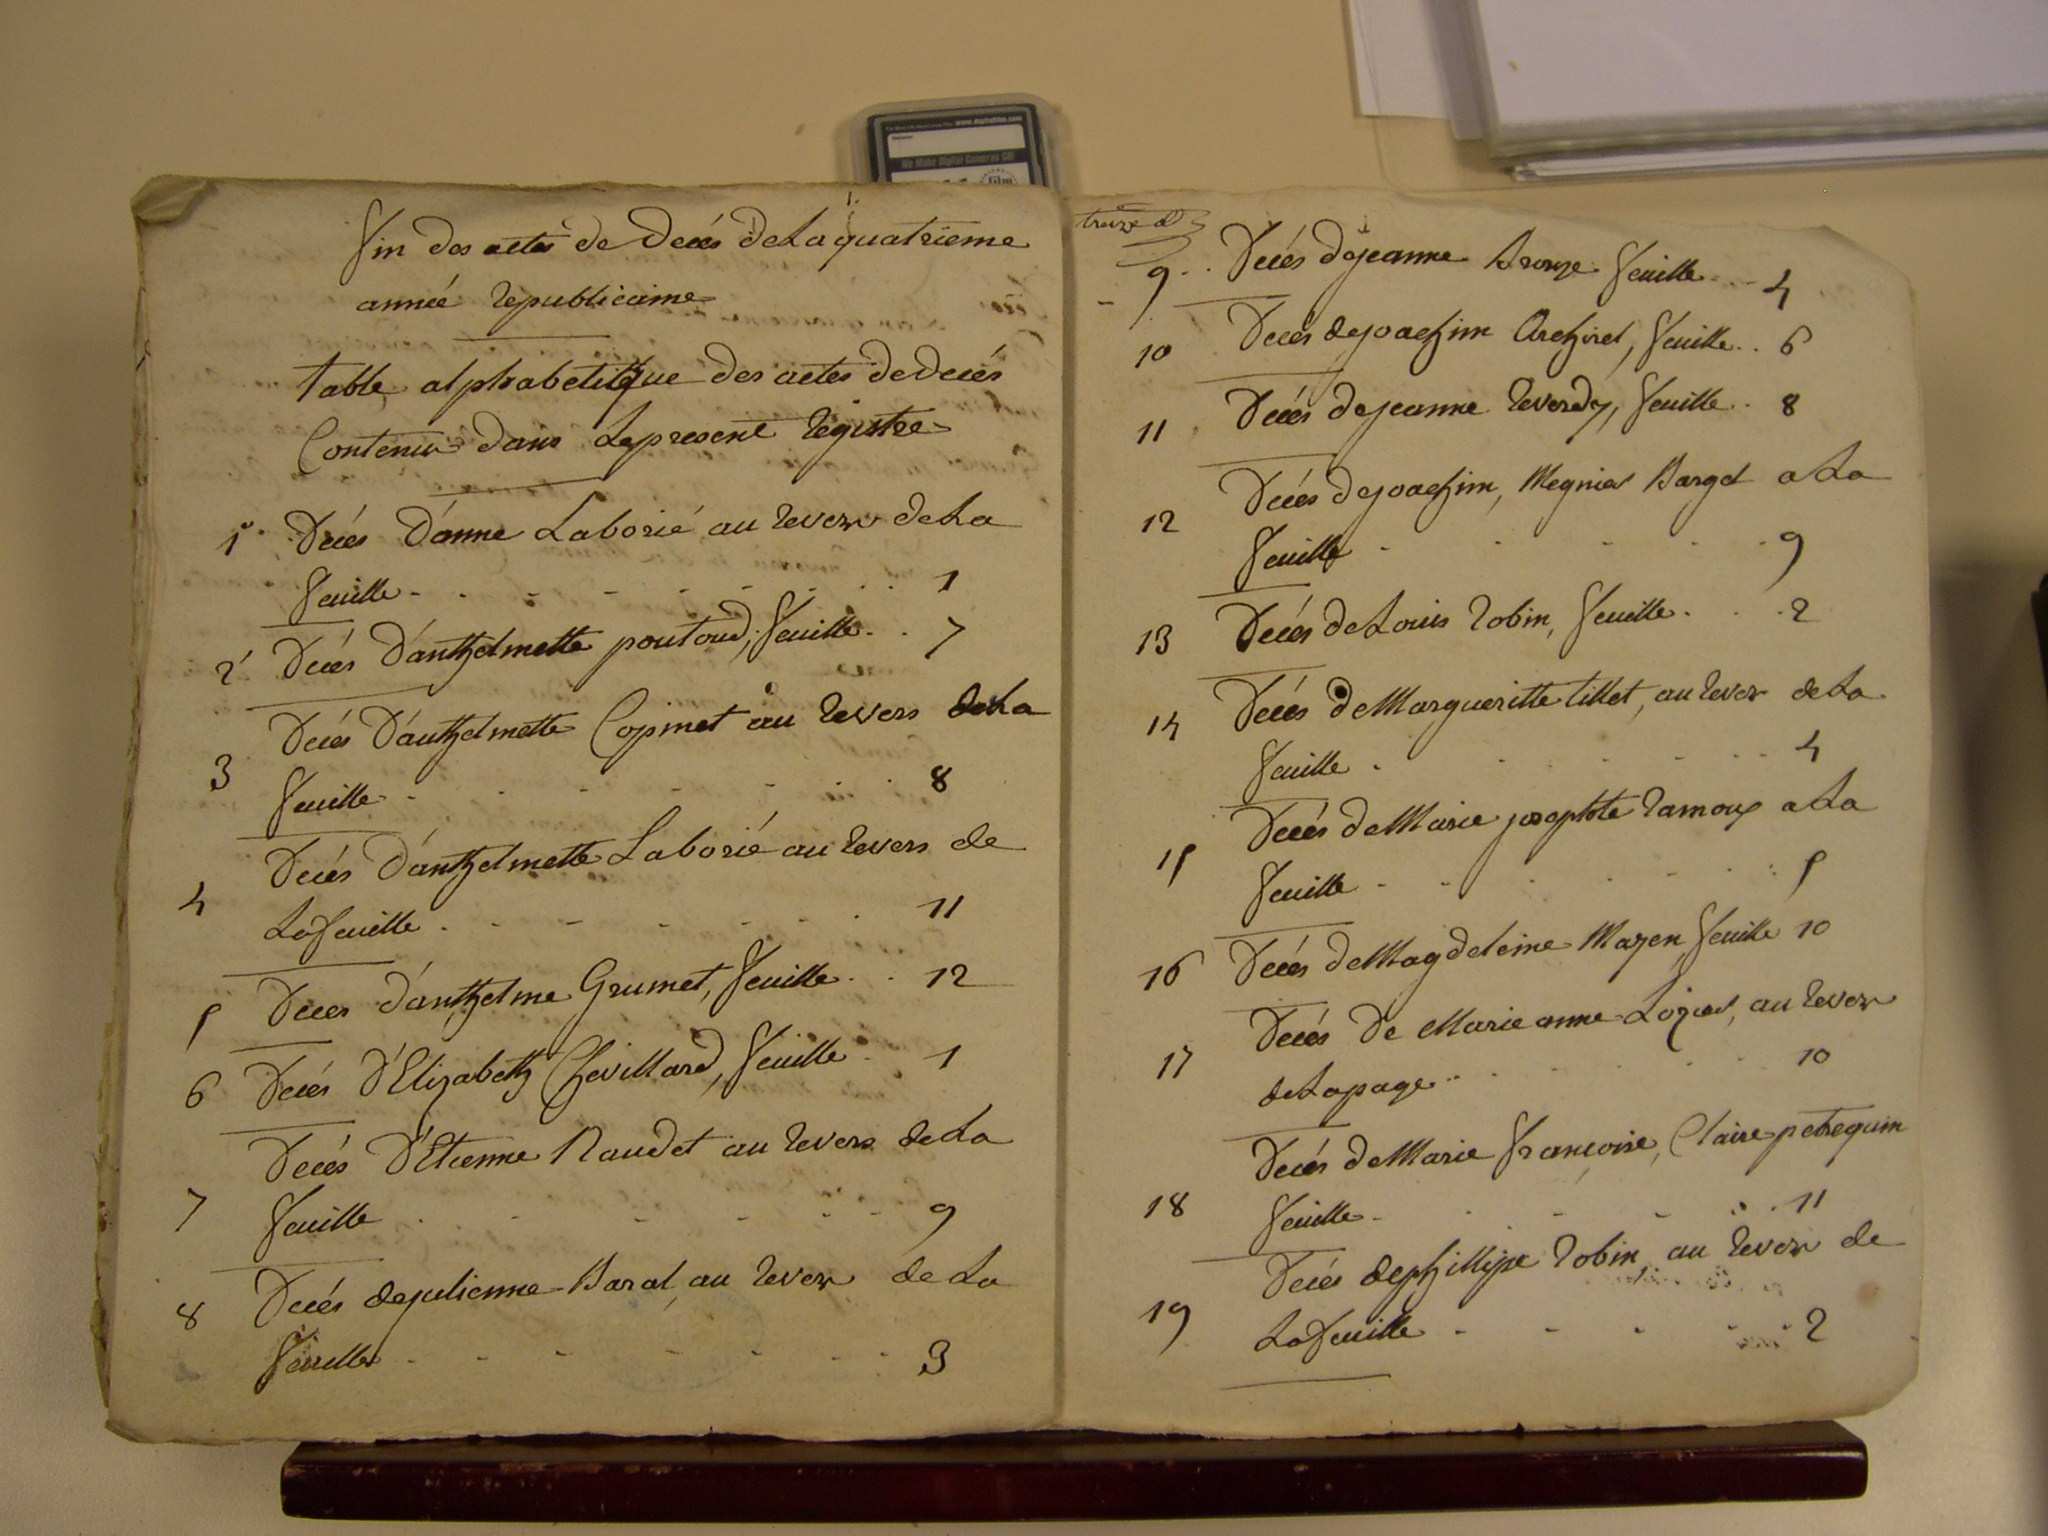 www.digitalfilm.com
We Make Digital Cameras GO!
film
fin des actes de Decés de La quatrieme
année republicaine
table alphabetique des actes de decés
Contenus dans Le present registre
1 Decés d'anne Laborié au revers de La
feuille 1
2 Decés d'anthelmette poutoud, feuille 7
Decés d'anthelmette Copinet au revers de La
3 feuille 8
Decés d'anthelmette Laborié au revers de
4 La feuille 11
5 Deces d'anthelme Grumet, feuille 12
6 Decés d'Elizabeth Chevillard, feuille 1
Decés d'Etienne Naudet au revers de La
7 feuille 9
8 Decés de julienne Baral, au revers de La
feuille 3
treize
9 Decés de jeanne feuille 4
10 Decés de joachim Archirel, feuille 6
11 Decés de jeanne reverdy, feuille 8
Decés de joachim, Megnier Barget a La
12 feuille 9
13 Decés de Louis robin, feuille 2
14 Decés de Margueritte tillet, au revers de La
feuille 4
Decés de Marie josephte ramoux a La
15 feuille 5
16 Decés de Magdeleine Mazen, feuille 10
Decés de Marie anne au revers
17 de La page 10
Decés de Marie françoise, Claire petrequin
18 feuille 11
Decés de phillipe robin, au revers de
19 La feuille 2